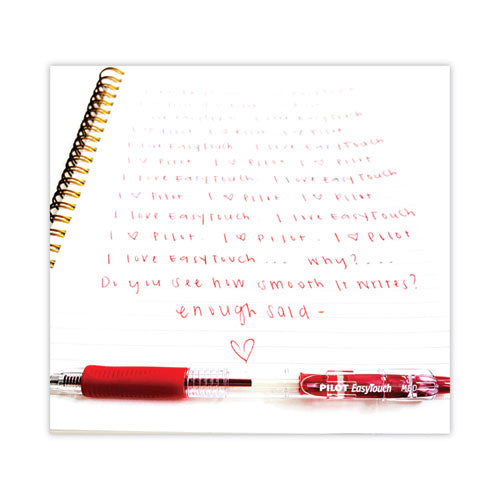 I love EasyTouch I love EasyTouch
I ♡ Pilot I ♡ Pilot I ♡ Pilot
I love EasyTouch I love EasyTouch
I ♡ Pilot I ♡ Pilot I ♡ Pilot
I love EasyTouch. I love EasyTouch
I ♡ Pilot I ♡ Pilot I ♡ Pilot
I love EasyTouch. I love EasyTouch
I ♡ Pilot. I ♡ Pilot. I ♡ Pilot
I love EasyTouch ... Why? ...
Do you see how smooth it writes?
enough said -
♡
PILOT EasyTouch MED